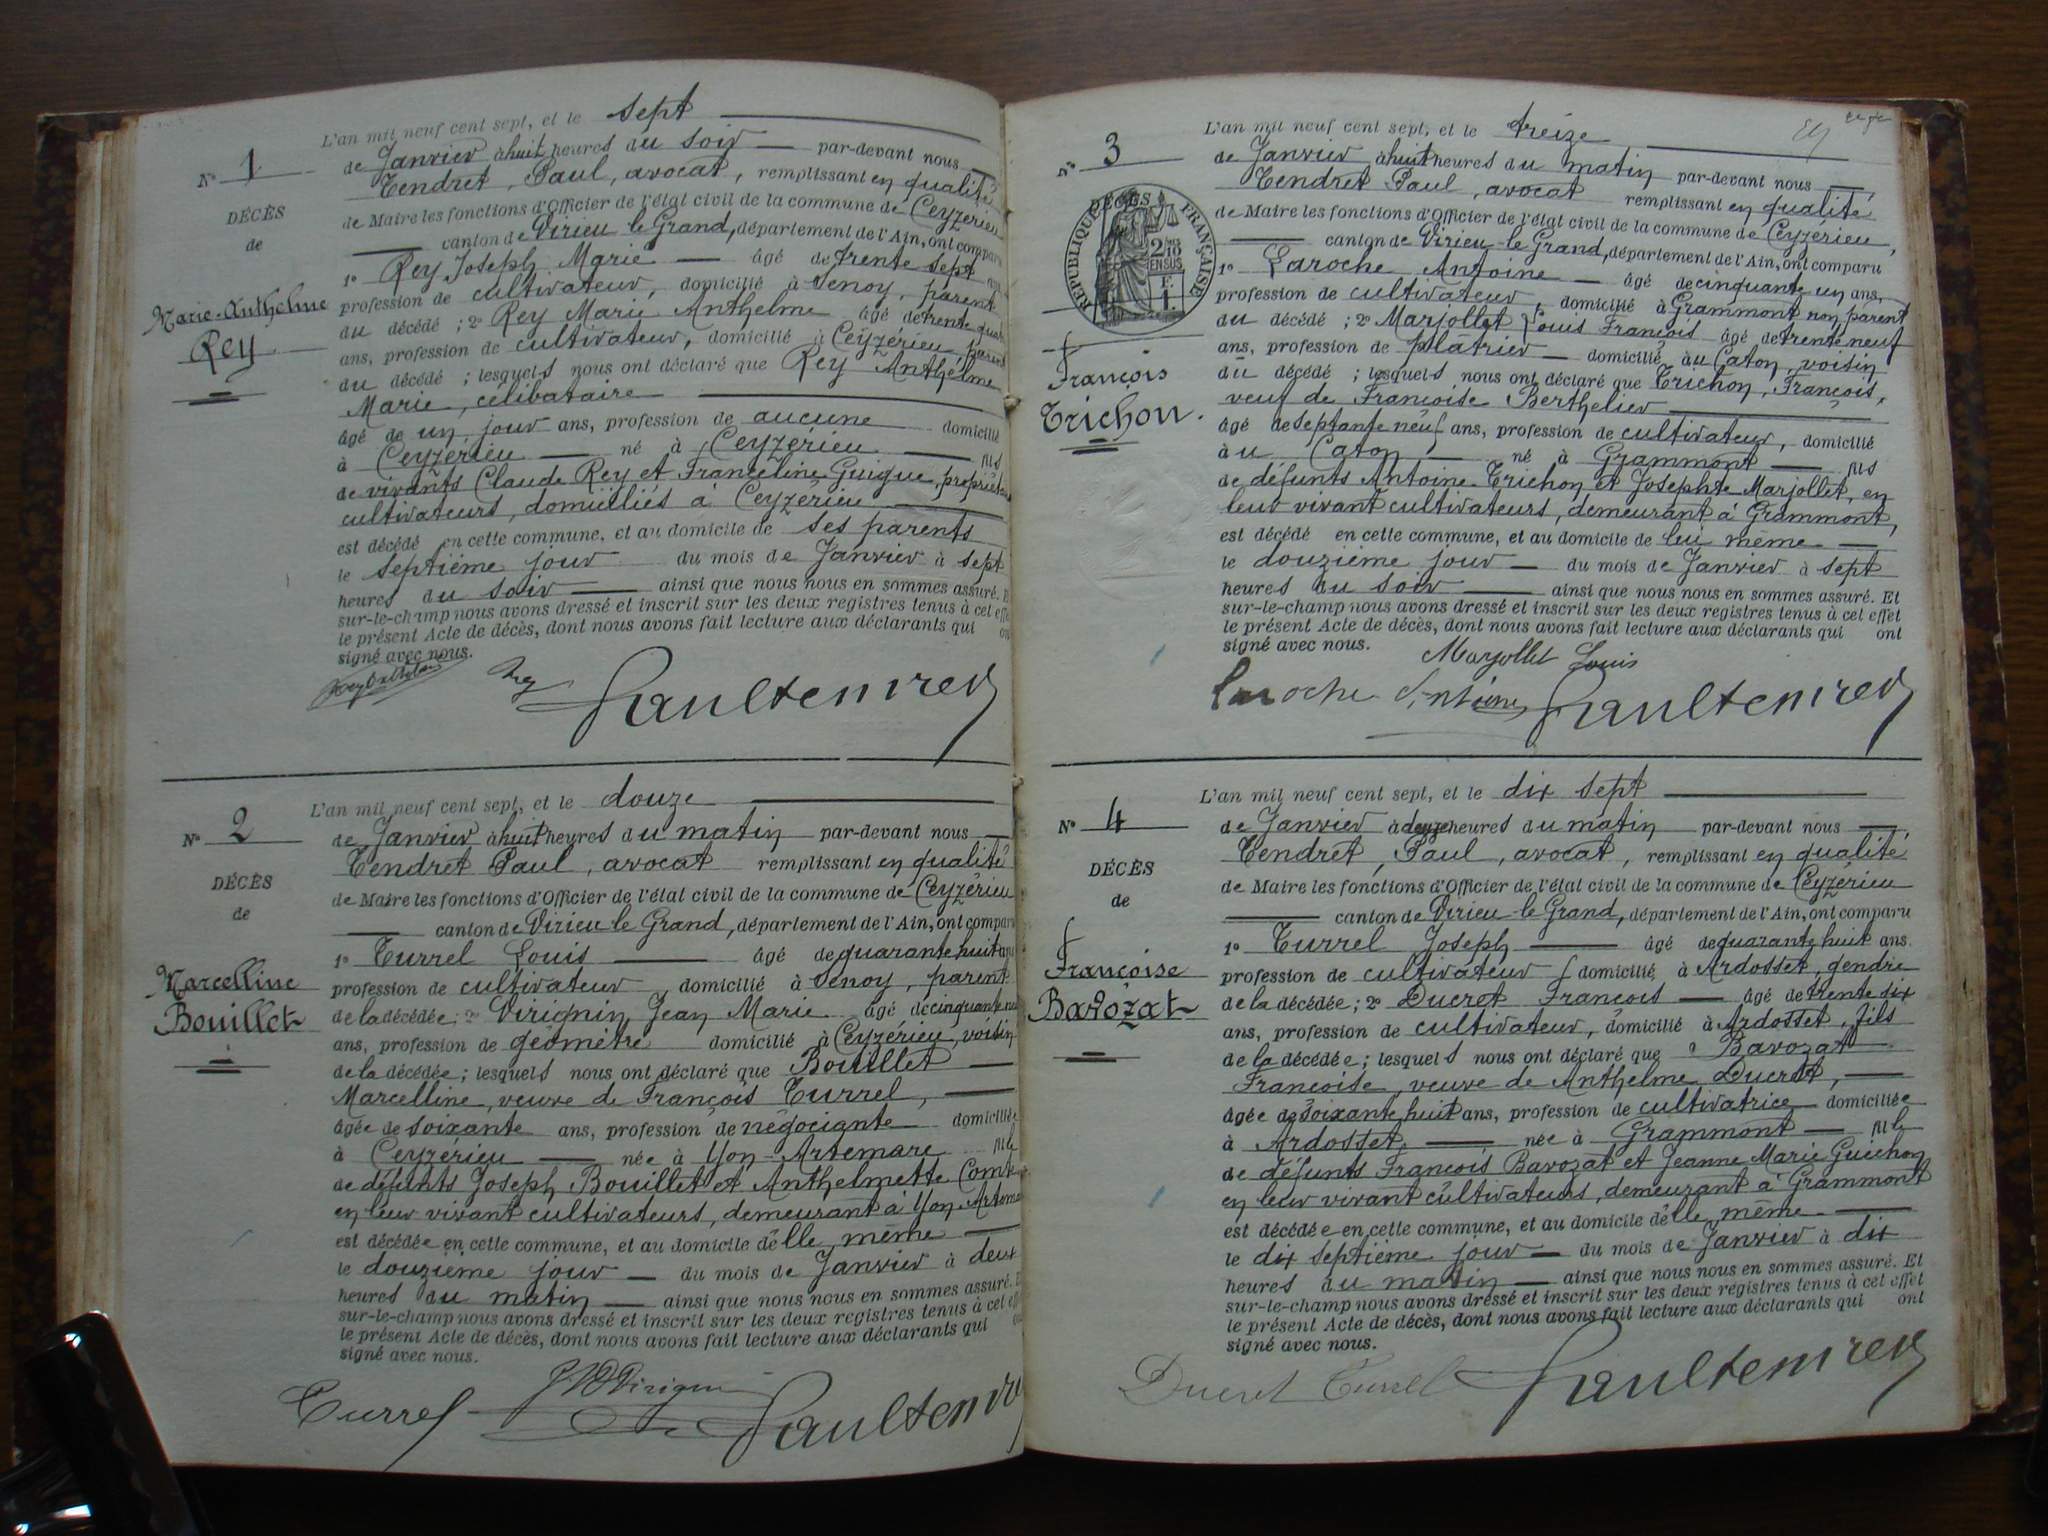 N° 1
DÉCÈS
de
Marie-Anthelme
Rey
L'an mil neuf cent sept, et le sept
de Janvier à huit heures du soir par-devant nous
Tendret, Paul, avocat, remplissant en qualité
de Maire les fonctions d'Officier de l'état civil de la commune de Ceyzérieu
canton de Virieu le Grand, département de l'Ain, ont comparu
1° Rey Joseph Marie âgé de trente sept ans
profession de cultivateur, domicilié à Senoy, parent
du décédé ; 2° Rey Marie Anthelme âgé de trente quatre
ans, profession de cultivateur, domicilié à Ceyzérieu parent
du décédé ; lesquels nous ont déclaré que Rey Anthelme
Marie, célibataire
âgé de un jour ans, profession de aucune domicilié
à Ceyzérieu né à Ceyzérieu fils
de vivants Claude Rey et Franceline Guigue, propriét
cultivateurs, domiciliés à Ceyzérieu
est décédé en cette commune, et au domicile de ses parents
le septième jour du mois de Janvier à sept
heures du soir ainsi que nous nous en sommes assuré. Et
sur-le-champ nous avons dressé et inscrit sur les deux registres tenus à cet effet
le présent Acte de décès, dont nous avons fait lecture aux déclarants qui ont
signé avec nous.
Rey
Paul Tendret
N° 2
DÉCÈS
de
Marcelline
Bouillet
L'an mil neuf cent sept, et le douze
de Janvier à huit heures du matin par-devant nous
Tendret Paul, avocat remplissant en qualité
de Maire les fonctions d'Officier de l'état civil de la commune de Ceyzérieu
canton de Virieu le Grand, département de l'Ain, ont comparu
1° Turrel Louis âgé de quarante huit ans
profession de cultivateur domicilié à Senoy, parent
de la décédée ; 2° Virignin Jean Marie âgé de cinquante
ans, profession de géomètre domicilié à Ceyzérieu, voisin
de la décédée ; lesquels nous ont déclaré que Bouillet
Marcelline, veuve de François Turrel,
âgée de soixante ans, profession de négociante domiciliée
à Ceyzérieu née à Yon-Artemare fille
de défunts Joseph Bouillet et Anthelmette Comte
en leur vivant cultivateurs, demeurant à Yon-Artema
est décédée en cette commune, et au domicile d'elle même
le douzième jour du mois de Janvier à deux
heures du matin ainsi que nous nous en sommes assuré. Et
sur-le-champ nous avons dressé et inscrit sur les deux registres tenus à cet effet
le présent Acte de décès, dont nous avons fait lecture aux déclarants qui
signé avec nous.
Turrel J. M. Virignin Paul Tendret
N° 3
DÉCÈS
RÉPUBLIQUE FRANÇAISE
2/10 EN SUS
François
Trichon.
L'an mil neuf cent sept, et le treize
de Janvier à huit heures du matin par-devant nous
Tendret Paul, avocat remplissant en qualité
de Maire les fonctions d'Officier de l'état civil de la commune de Ceyzérieu,
canton de Virieu-le Grand, département de l'Ain, ont comparu
1° Laroche Antoine âgé de cinquante un ans,
profession de cultivateur, domicilié à Grammont non parent
du décédé ; 2° Marjollet Louis François âgé de trente neuf
ans, profession de platrier domicilié au Caton, voisin
du décédé ; lesquels nous ont déclaré que Trichon, François,
veuf de Françoise Berthelier
âgé de septante neuf ans, profession de cultivateur, domicilié
à u Caton né à Grammont fils
de défunts Antoine Trichon et Josephte Marjollet, en
leur vivant cultivateurs, demeurant à Grammont,
est décédé en cette commune, et au domicile de lui même
le douzième jour du mois de Janvier à sept
heures du soir ainsi que nous nous en sommes assuré. Et
sur-le-champ nous avons dressé et inscrit sur les deux registres tenus à cet effet
le présent Acte de décès, dont nous avons fait lecture aux déclarants qui ont
signé avec nous. Marjollet Louis
Laroche Antoine Paul Tendret
N° 4
DÉCÈS
de
Françoise
Bavozat
L'an mil neuf cent sept, et le dix sept
de Janvier à douze heures du matin par-devant nous
Tendret, Paul, avocat, remplissant en qualité
de Maire les fonctions d'Officier de l'état civil de la commune de Ceyzérieu
canton de Virieu-le Grand, département de l'Ain, ont comparu
1° Turrel Joseph âgé de quarante huit ans
profession de cultivateur domicilié à Ardosset, gendre
de la décédée ; 2° Ducret François âgé de trente dix
ans, profession de cultivateur, domicilié à Ardosset, fils
de la décédée ; lesquels nous ont déclaré que Bavozat
Françoise, veuve de Anthelme Ducret,
âgée de soixante huit ans, profession de cultivatrice domiciliée
à Ardosset, née à Grammont fille
de défunts François Bavozat et Jeanne Marie Guichon
en leur vivant cultivateurs, demeurant à Grammont
est décédée en cette commune, et au domicile d'elle même
le dix septième jour du mois de Janvier à dix
heures du matin ainsi que nous nous en sommes assuré. Et
sur-le-champ nous avons dressé et inscrit sur les deux registres tenus à cet effet
le présent Acte de décès, dont nous avons fait lecture aux déclarants qui ont
signé avec nous.
Ducret Turrel Paul Tendret